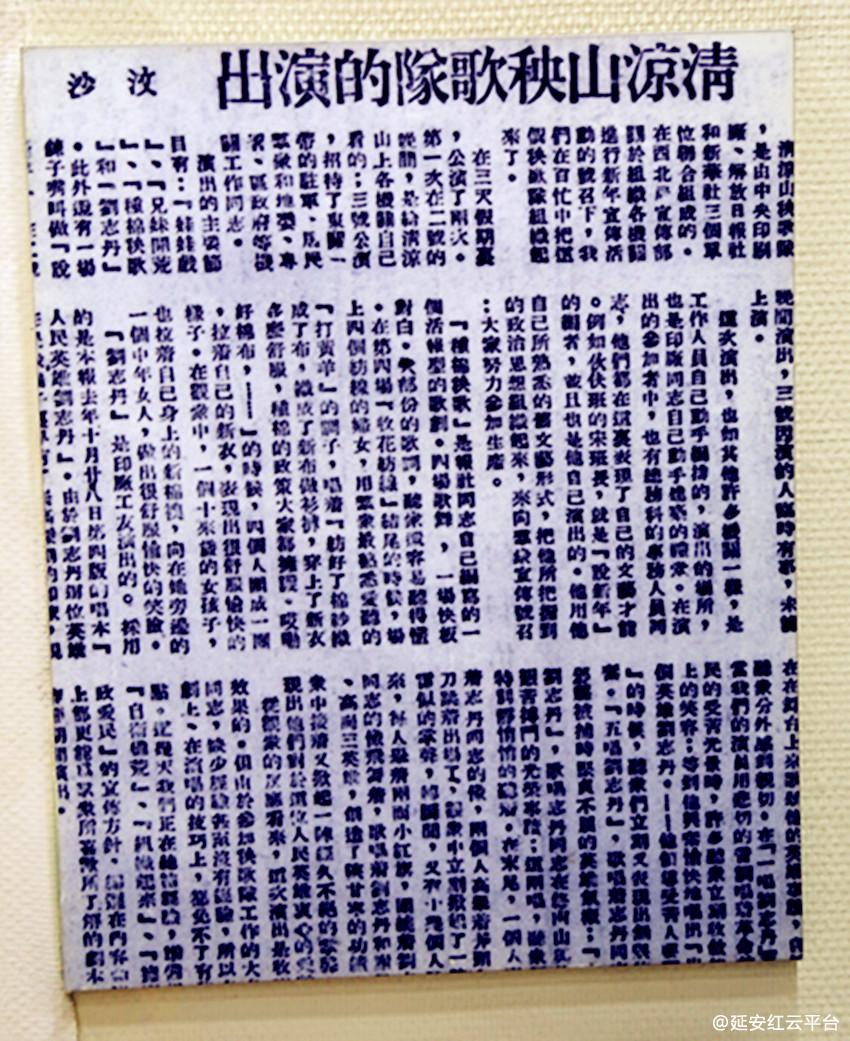 清涼山秧歌隊的演出
汶沙
清涼山秧歌隊
，是由中央印刷
廠、解放日報社
和新華社三個單
位聯合組成的。
在西北局宣傳部
關於組織各機關
進行新年宣傳活
動的號召下，我
們在百忙中把這
個秧歌隊組織起
來了。
在三天假期裏
，公演了兩次。
第一次在二號的
晚間，是給清涼
山上各機關自己
看的；三號公演
，招待了東關一
帶的駐軍、居民
羣衆和地委、專
署、區政府等機
關工作同志。
演出的主要節
目有：『
』、『兄妹開荒
』、『種棉秧歌
』和『劉志丹』
。此外還有一場
練子嘴叫做『說
晚間演出，三號因演的人臨時有事，未能
上演。
這次演出，也如其他許多機關一樣，是
工作人員自己動手編排的，演出的場所，
也是印廠同志自己動手建築的禮堂。在演
出的參加者中，也有總務科的事務人員同
志，他們都在這裏表現了自己的文藝才能
。例如伙伕班的宋班長，就是『說新年』
的編者，並且也是他自己演出的。他用他
自己所熟悉的舊文藝形式，把他所把握到
的政治思想組織起來，來向羣衆宣傳號召
：大家努力參加生產。
『種棉秧歌』是報社同志自己編寫的一
個活報型的歌劇。四場歌舞，一場快板
對白。大部份的歌詞，聽衆很容易聽得懂
。在第四場『收花紡線』結尾的時候，場
上四個紡線的婦女，用羣衆最熟悉愛聽的
『打黃羊』的調子，唱着『紡好了棉紗織
成了布，織成了新布做衫褲，穿上了新衣
多麼舒服，種棉的政策大家都擁護。哎喲
好棉布，——』的時候，四個人圍成一團
，拉着自己的新衣，表現出很舒服愉快的
樣子。在觀衆中，一個十來歲的女孩子，
也拉着自己身上的新棉襖，向在她旁邊的
一個中年女人，做出很舒服愉快的笑臉。
『劉志丹』是印廠工友演出的。採用
的是本報去年十月廿八日第四版的唱本『
人民英雄劉志丹』。由於劉志丹這位英雄
在在舞台上來歌頌他的英雄事蹟，
聽衆分外感到親切。在『一唱劉志丹
當我們的演員用悲切的音調唱着革命
民的受苦光景時，許多聽衆立刻收斂
上的笑容；等到他興奮愉快地唱出『
個英雄劉志丹。——他領導受苦人
』的時候，聽衆們立刻又表現出
。『五唱劉志丹』，歌唱着志丹同
被捕時堅貞不屈的英雄氣概：『
劉志丹』，歌唱志丹同志在終南山
特別靜悄悄的聽着。在末尾，一個人
着志丹同志的像，兩個人高舉着斧頭
刀跳着出場了，觀衆中立刻掀起了一
來，每人舉着兩面小紅旗，圍繞着劉
同志的像飛舞着，歌唱着劉志丹和
、高崗三英雄，創造了陝甘寧的功績
衆中接着又掀起一陣經久不絕的掌聲
現出他們對於這位人民英雄衷心的
從觀衆的反應看來，這次演出是收
效果的。但由於參加秧歌隊工作的大
同志，缺少經驗甚至沒有經驗，所以
劇上、在演唱的技巧上，都免不了有
點。這幾天我們正在總結經驗，
『自衛備荒』、『組織起來』、『擁
政愛民』的宣傳方針，
上都更能爲羣衆所喜歡所了解的劇本